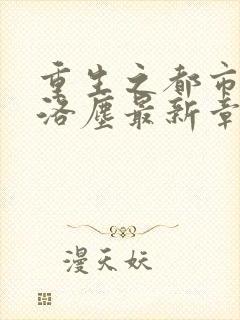 重生之都市
洛塵最新章
漫天妖